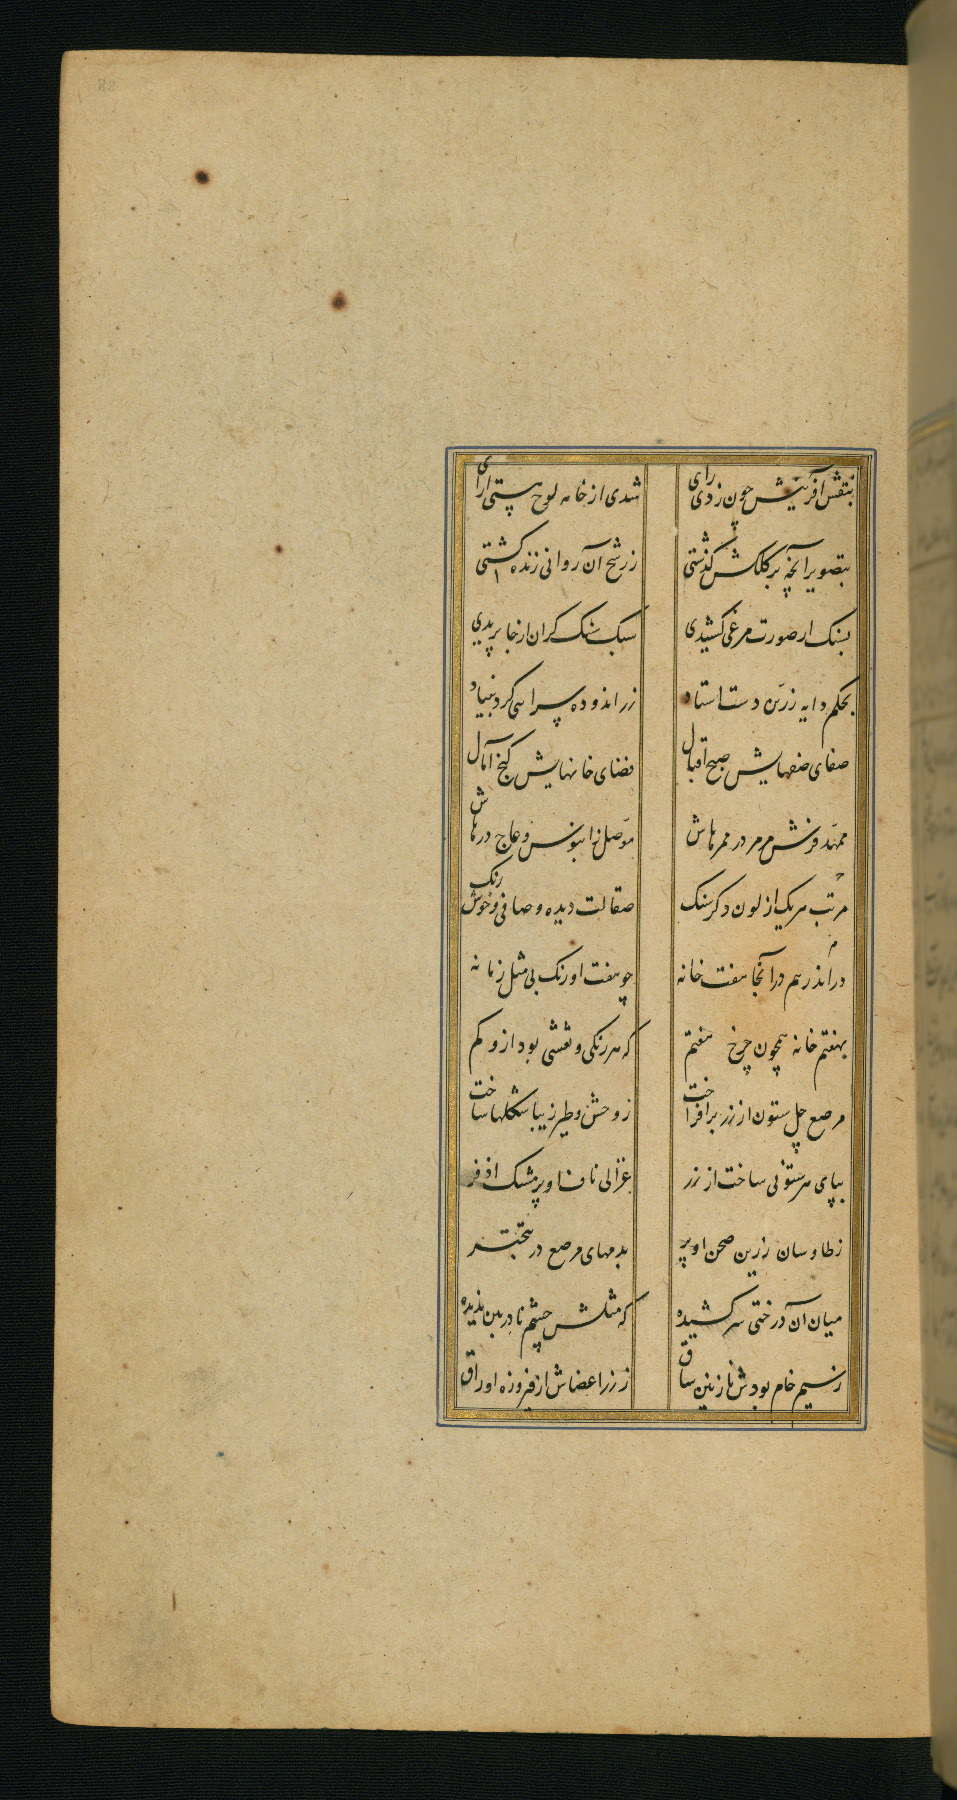 بنقش آفرینش چون زدی رای شدی از خامه لوح هستی آرای
بتصویر آنچه بر کلکش گذشتی ز رشح آن روانی زنده گشتی
بسنک ار صورت مرغی کشیدی سبک سنک کران از جا پریدی
بحکم دایه زرین دست استاد زر اندوده سرائی کرد بنیاد
صفای صفهایش صبح اقبال فضای خانهایش کنج آمال
ممهد فرش مرمر در ممرهاش موصل ز ابنوس و عاج درهاش
مرتب هر یک از لون دکر سنک صقالت دیده و صافی و خوش رنک
در اندر هم در آنجا هفت خانه چو هفت اورنک بی مثل زمانه
بهفتم خانه همچون چرخ هفتم که هر رنکی و نقشی بود ازو کم
مرصع چل ستون از زر برافراخت ز وحش و طیر زیبا شکلها ساخت
بپای هر ستونی ساخت از زر غزالی ناف او پر مشک اذفر
ز طاوسان زرین صحن او پر بدمهای مرصع در تبختر
میان آن درختی سر کشیده که مثلش چشم نادربین ندیده
ز سیم خام بودش نازنین ساق ز زر اعضاش از فیروزه اوراق